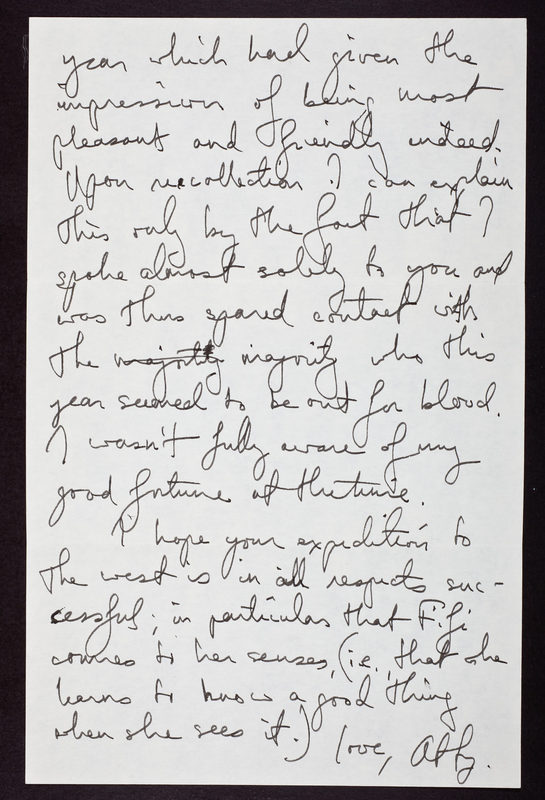 year which had given the
impression of being most
pleasant and friendly indeed.
Upon recollection I can explain
this only by the fact that I
spoke almost solely to you and
was thus spared contact with
the majority majority who this
year seemed to be out for blood.
I wasn't fully aware of my
good fortune at the time.
I hope your expedition to
the west is in all respects suc-
cessful; in particular that Fifi
comes to her senses, (i.e., that she
learns to know a good thing
when she sees it.) love, Abby.